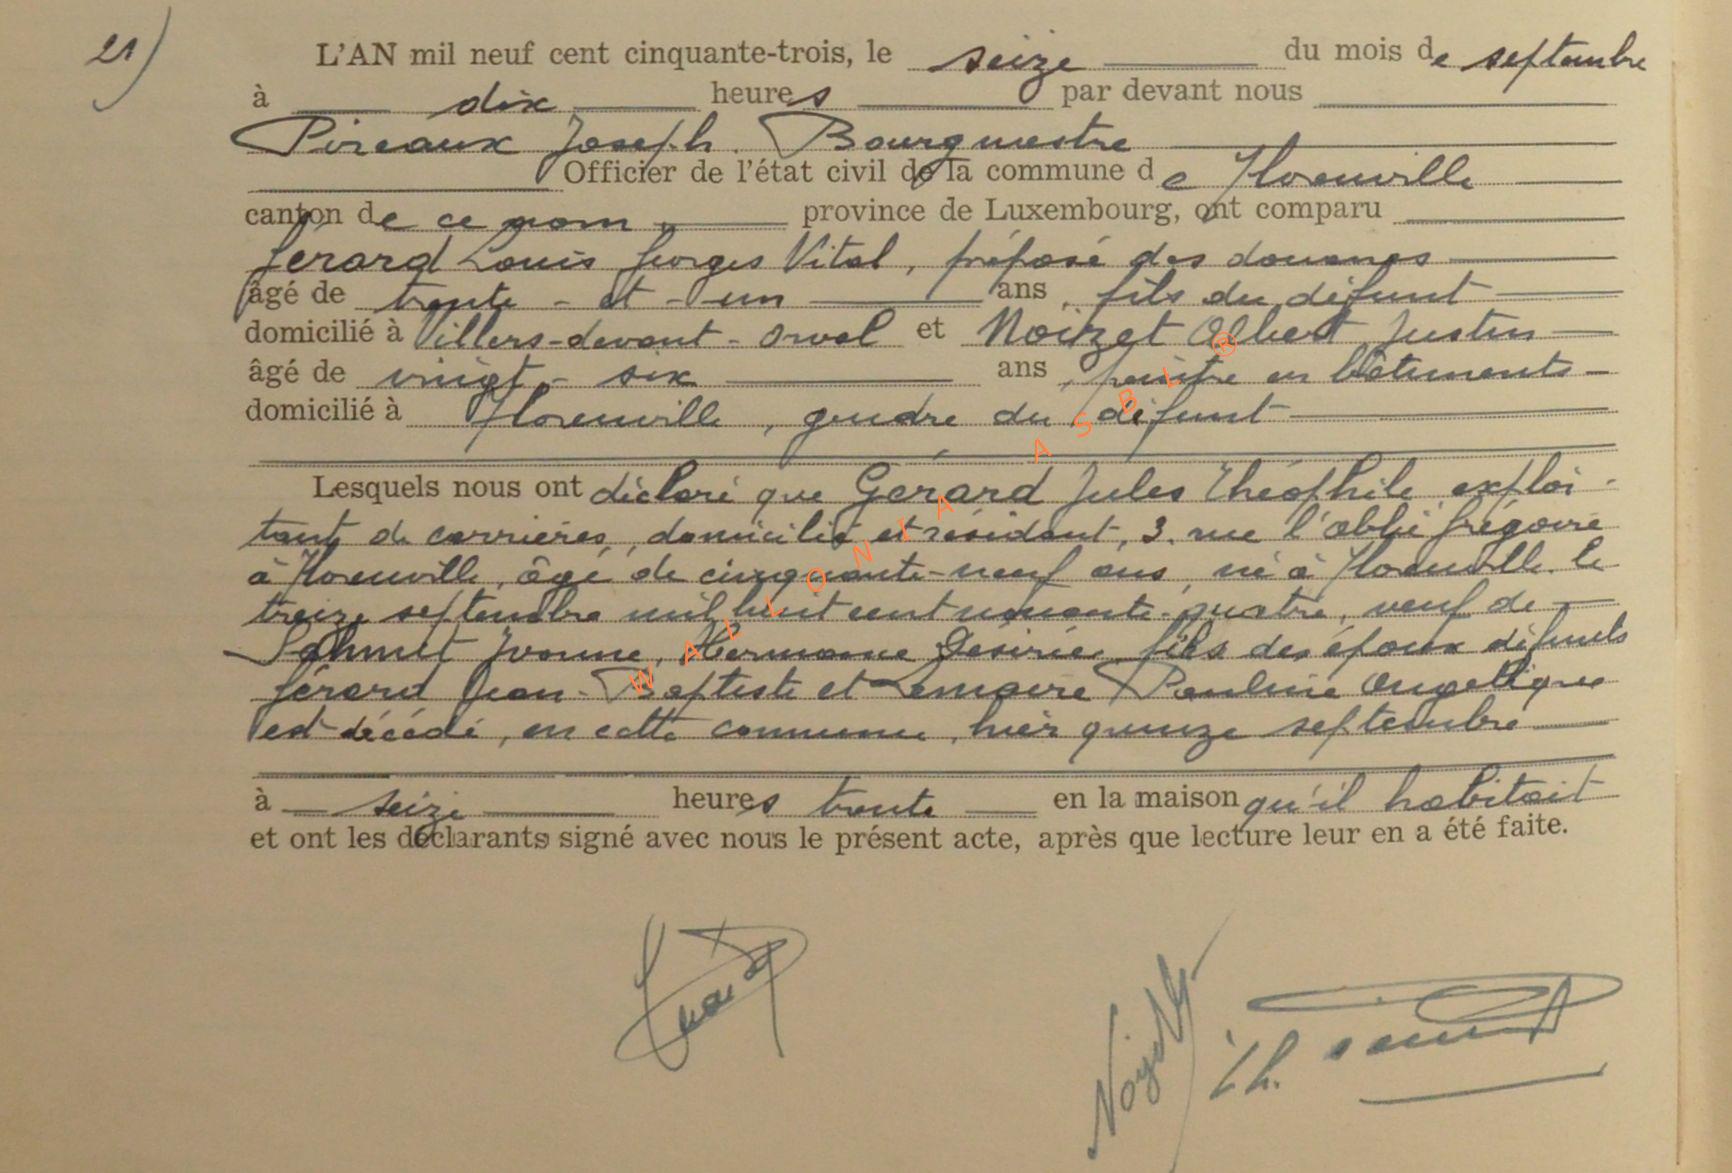 21)
L'AN mil neuf cent cinquante-trois, le seize du mois de septembre
à dix heures par devant nous
Pireaux Joseph. Bourgmestre
Officier de l'état civil de la commune de Florenville
canton de ce nom province de Luxembourg, ont comparu
Gérard Louis Georges Vital, préposé des douanes
âgé de trente-et-un ans, fils du défunt
domicilié à Villers-devant-Orval et Noizet Albert Justin
âgé de vingt-six ans, peintre en bâtiments
domicilié à Florenville, gendre du défunt
Lesquels nous ont déclaré que Gérard Jules Théophile exploi-
tant de carrières, domicilié et résidant, 3. rue l'abbé Grégoire
à Florenville, âgé de cinquante-neuf ans, né à Florenville le
treize septembre mil huit cent nonante-quatre, veuf de
Schmit Yvonne, Hermance Désirée, fils des époux défunts
Gérard Jean-Baptiste et Lemaire Pauline Angélique
est décédé, en cette commune, hier quinze septembre
à seize heures trente en la maison qu'il habitait
et ont les déclarants signé avec nous le présent acte, après que lecture leur en a été faite.
WALLONIA ASBL ®
Noizet